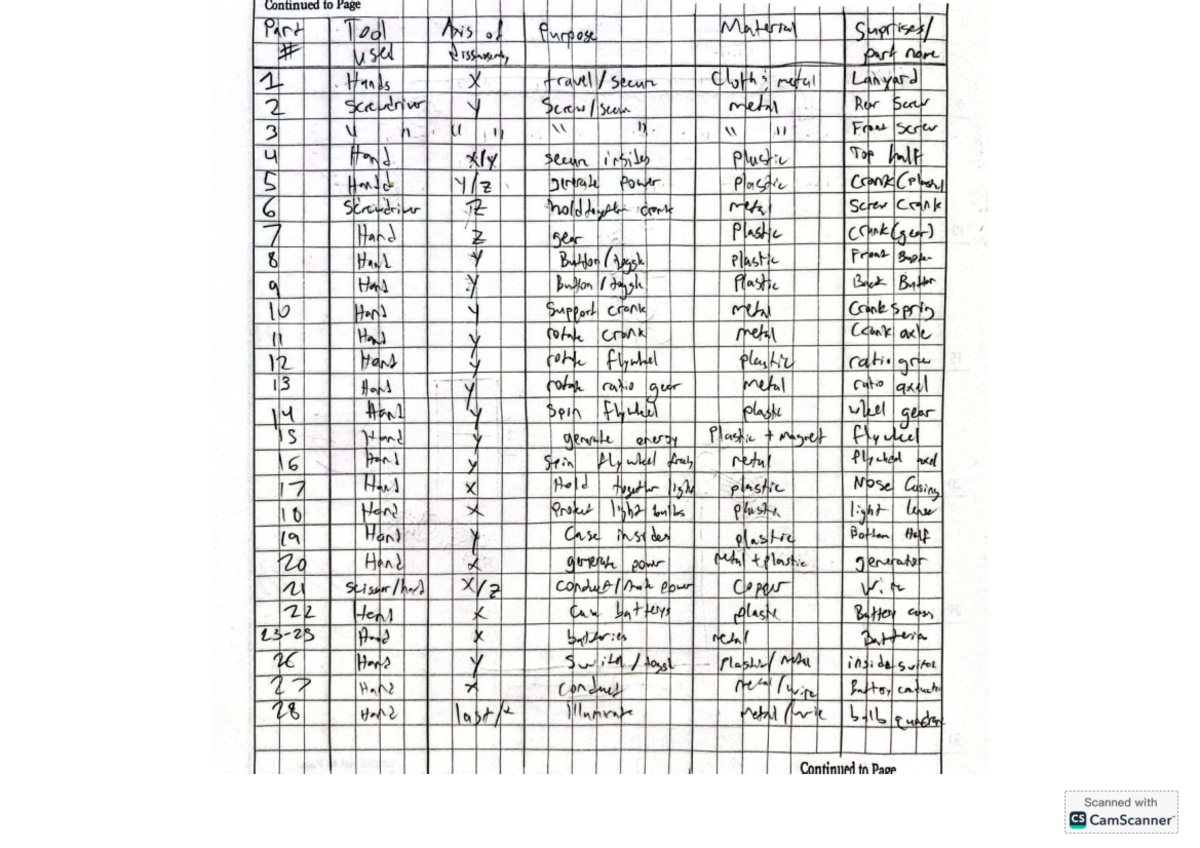 Continued to Page
Part Tool Axis of Purpose Material Suprises/
# used dissassembly part name
1 Hands X travel/secure Cloth & metal Lanyard
2 Screwdriver Y Screw/secure metal Rear Screw
3 " " " " " " " " Front Screw
4 Hand x/y secure insides Plastic Top half
5 Hand Y/Z generate power Plastic Crank (plastic)
6 Screwdriver Z hold together crank metal Screw Crank
7 Hand Z gear Plastic Crank (gear)
8 Hand Y Button/toggle plastic Front Button
9 Hand Y Button/toggle Plastic Back Button
10 Hand Y Support crank metal Crank spring
11 Hand Y rotate crank metal Crank axle
12 Hand Y rotate flywheel plastic ratio gear
13 Hand Y rotate ratio gear Metal ratio axel
14 Hand Y Spin flywheel plastic wheel gear
15 Hand Y generate energy Plastic + magnet flywheel
16 Hand Y Spin flywheel freely metal flywheel axel
17 Hand X Hold together light plastic Nose Casing
18 Hand X Protect light bulbs plastic light lense
19 Hand Y Case insides plastic Bottom Half
20 Hand X generate power metal + plastic generator
21 Scissor/hand X/Z conduct/ power Copper Wire
22 Hand X batterys plastic Battery case
23-25 Hand X batteries metal Batteries
26 Hand Y Switch/toggle Plastic/metal inside switch
27 Hand X Conduct metal/wire Battery conductor
28 Hand Illuminate metal/wire bulb
Continued to Page
Scanned with
CS CamScanner